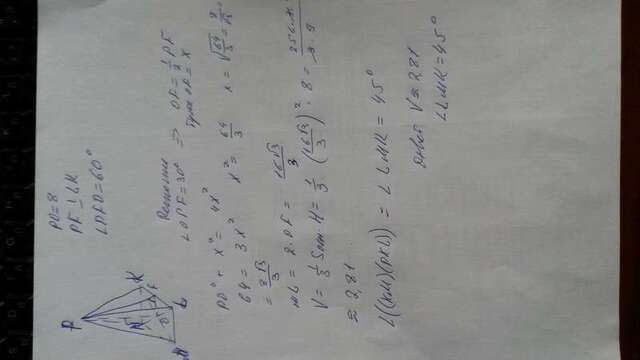 PO = 8
PF ⊥ LK
∠PFO = 60°
P
K
F
O
L
Решение
∠OPF = 30° ⇒ OF = 1/2 PF
Пусть OF = x
PO² + x² = 4x²
64 = 3x² x² = 64/3 x = √(64/3) = 8/√3
= 8√3/3
ML = 2 · OF = 16√3/3
V = 1/3 Sосн. H = 1/3 · (16√3/3)² · 8 =
≈ 281
∠((KM)(PKL)) = ∠LMK = 45°
Ответ V ≈ 281
∠LMK = 45°